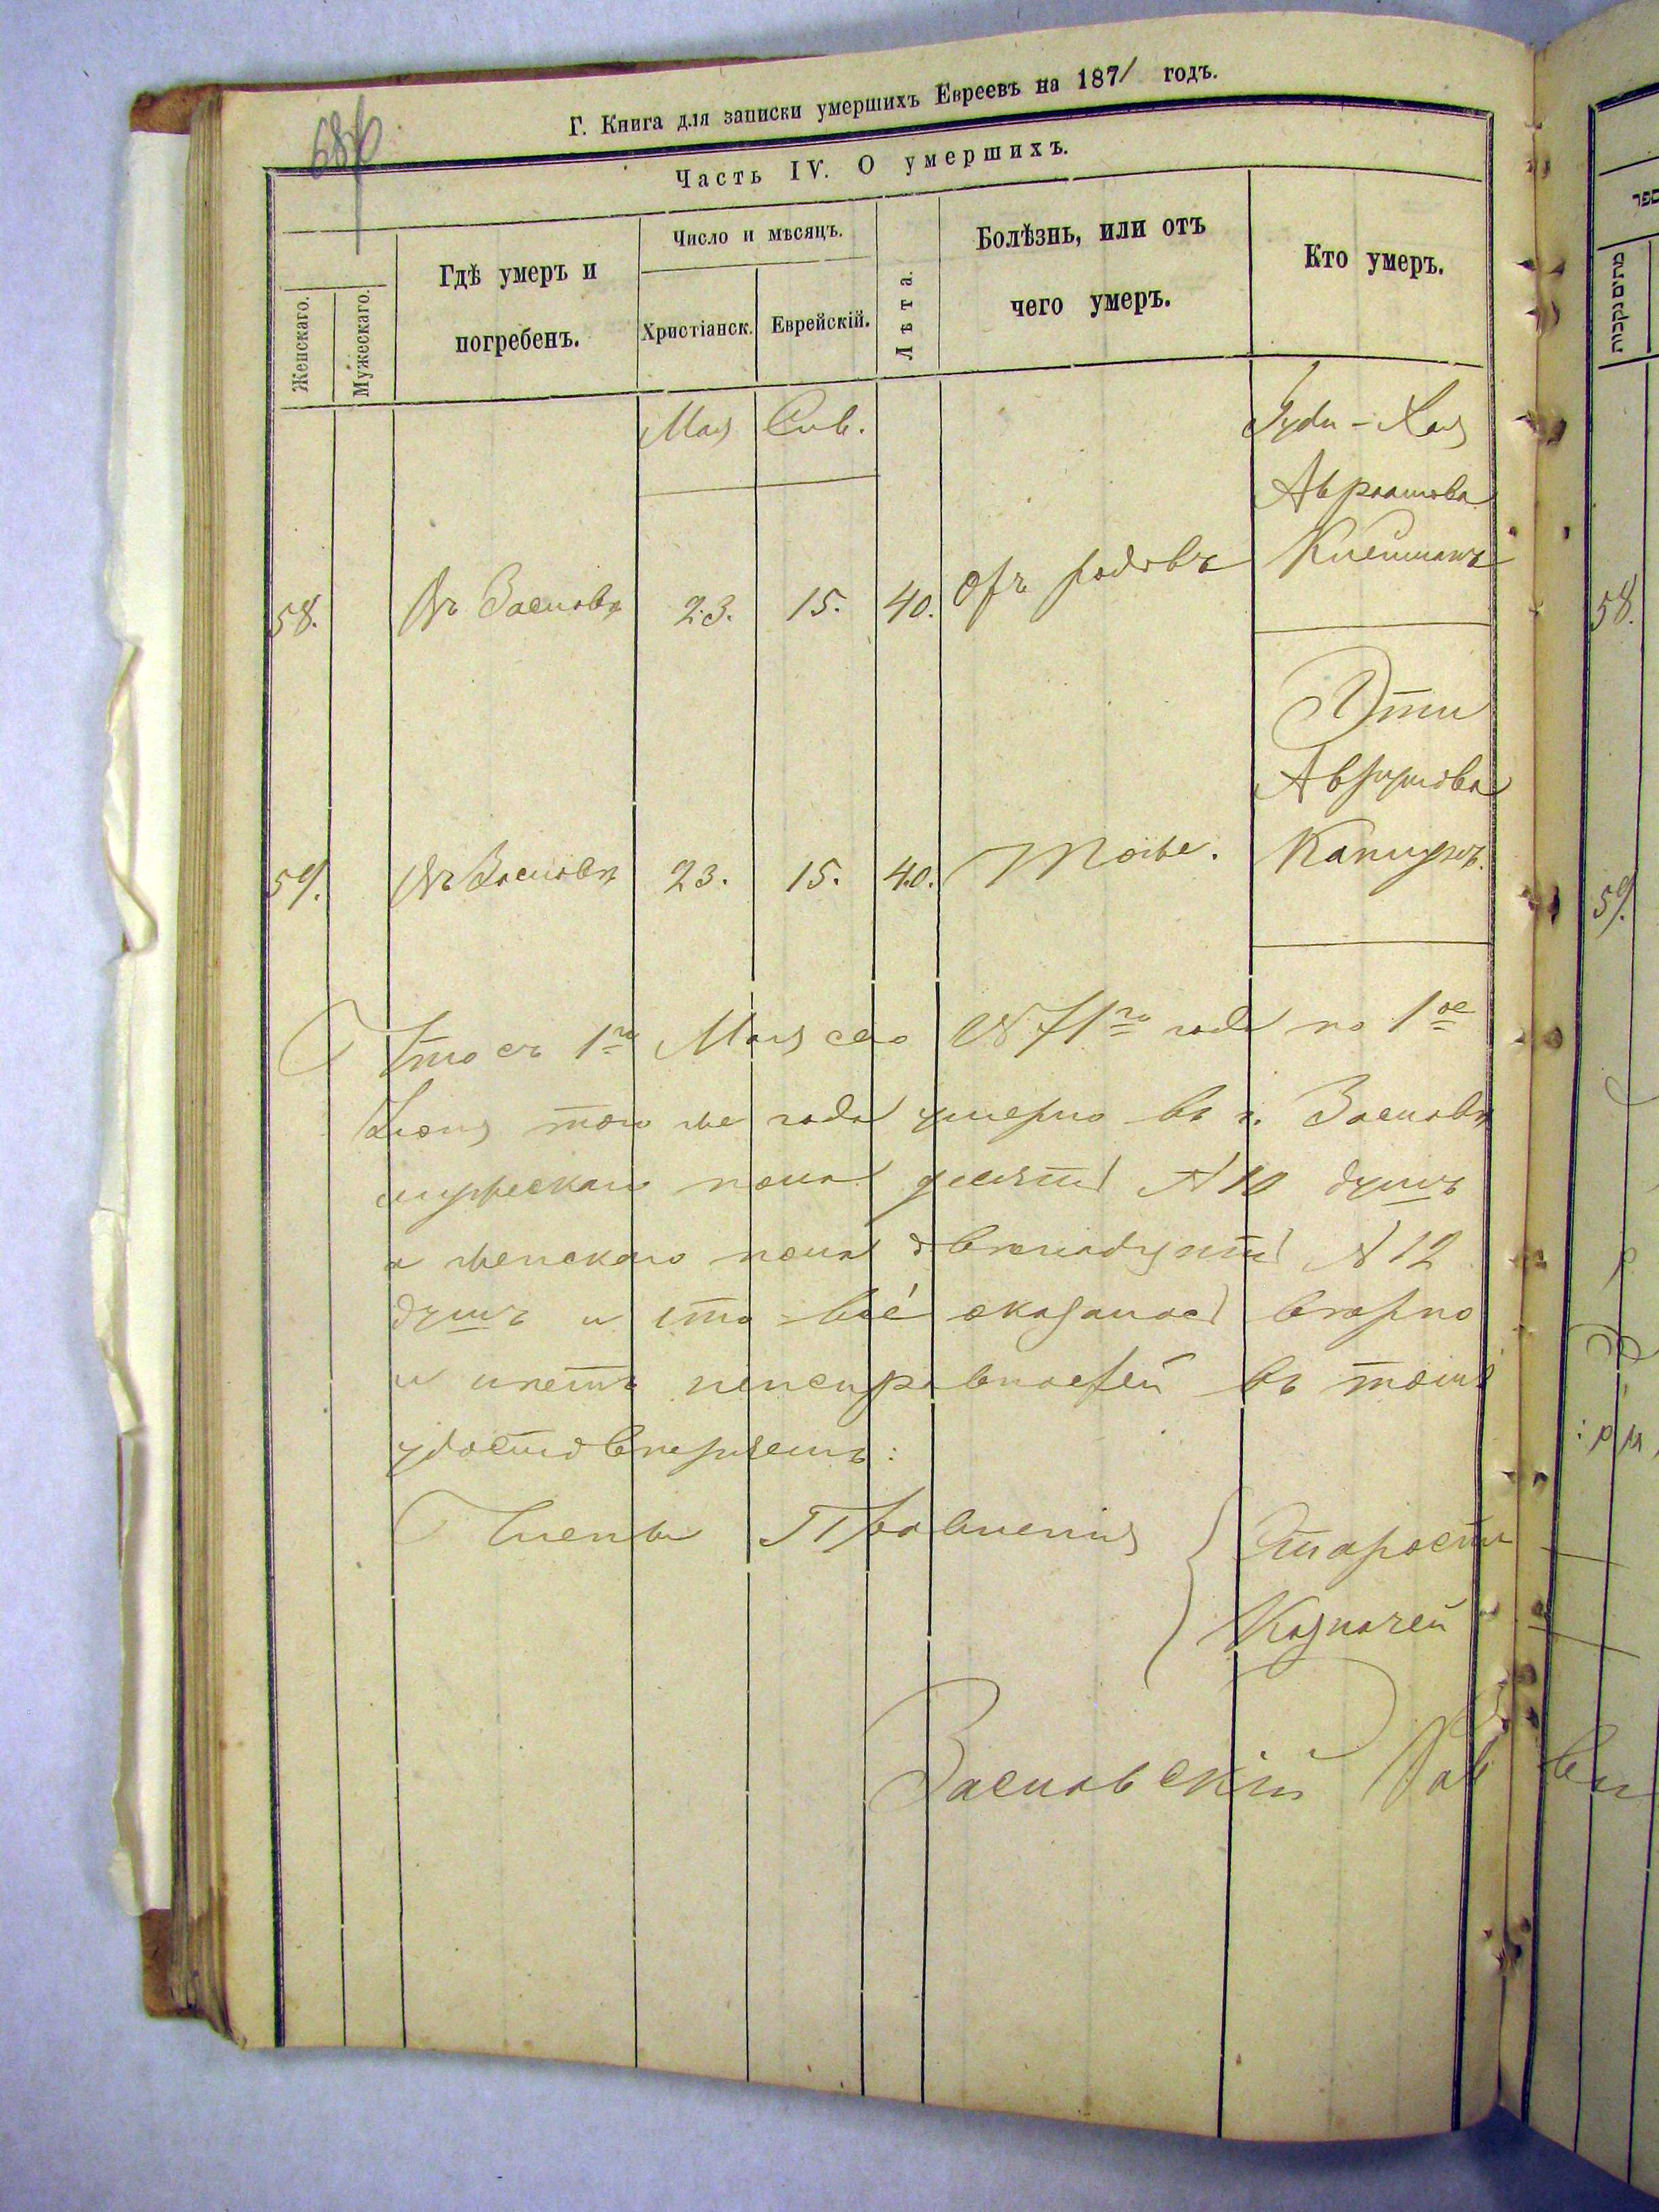 Г. Книга для записки умершихъ Евреевъ на 1871 годъ.
Часть IV. О умершихъ.
Женскаго.
Мужескаго.
Гдѣ умеръ и
погребенъ.
Число и мѣсяцъ.
Христіанск.
Еврейскій.
Лѣта.
Болѣзнь, или отъ
чего умеръ.
Кто умеръ.
Мая Сив. Гуди-Хая
Авраамова
58. Въ Заславѣ 23. 15. 40. отъ родовъ Клейманъ
Эти
Аврумова
59. Въ Заславѣ 23. 15. 40. Тоже.
Что съ 1го Мая сего 1871го года по 1ое
Іюня того же года умерло въ г. Заславѣ
мужескаго пола десять № 10 душъ
а женскаго пола двенадцать № 12
душъ и что всё оказалось вѣрно
и нетъ неисправностей въ томъ
удостовѣряемъ:
Члены Правленія { Староста
Казначей
Заславскій Рав
58.
59.